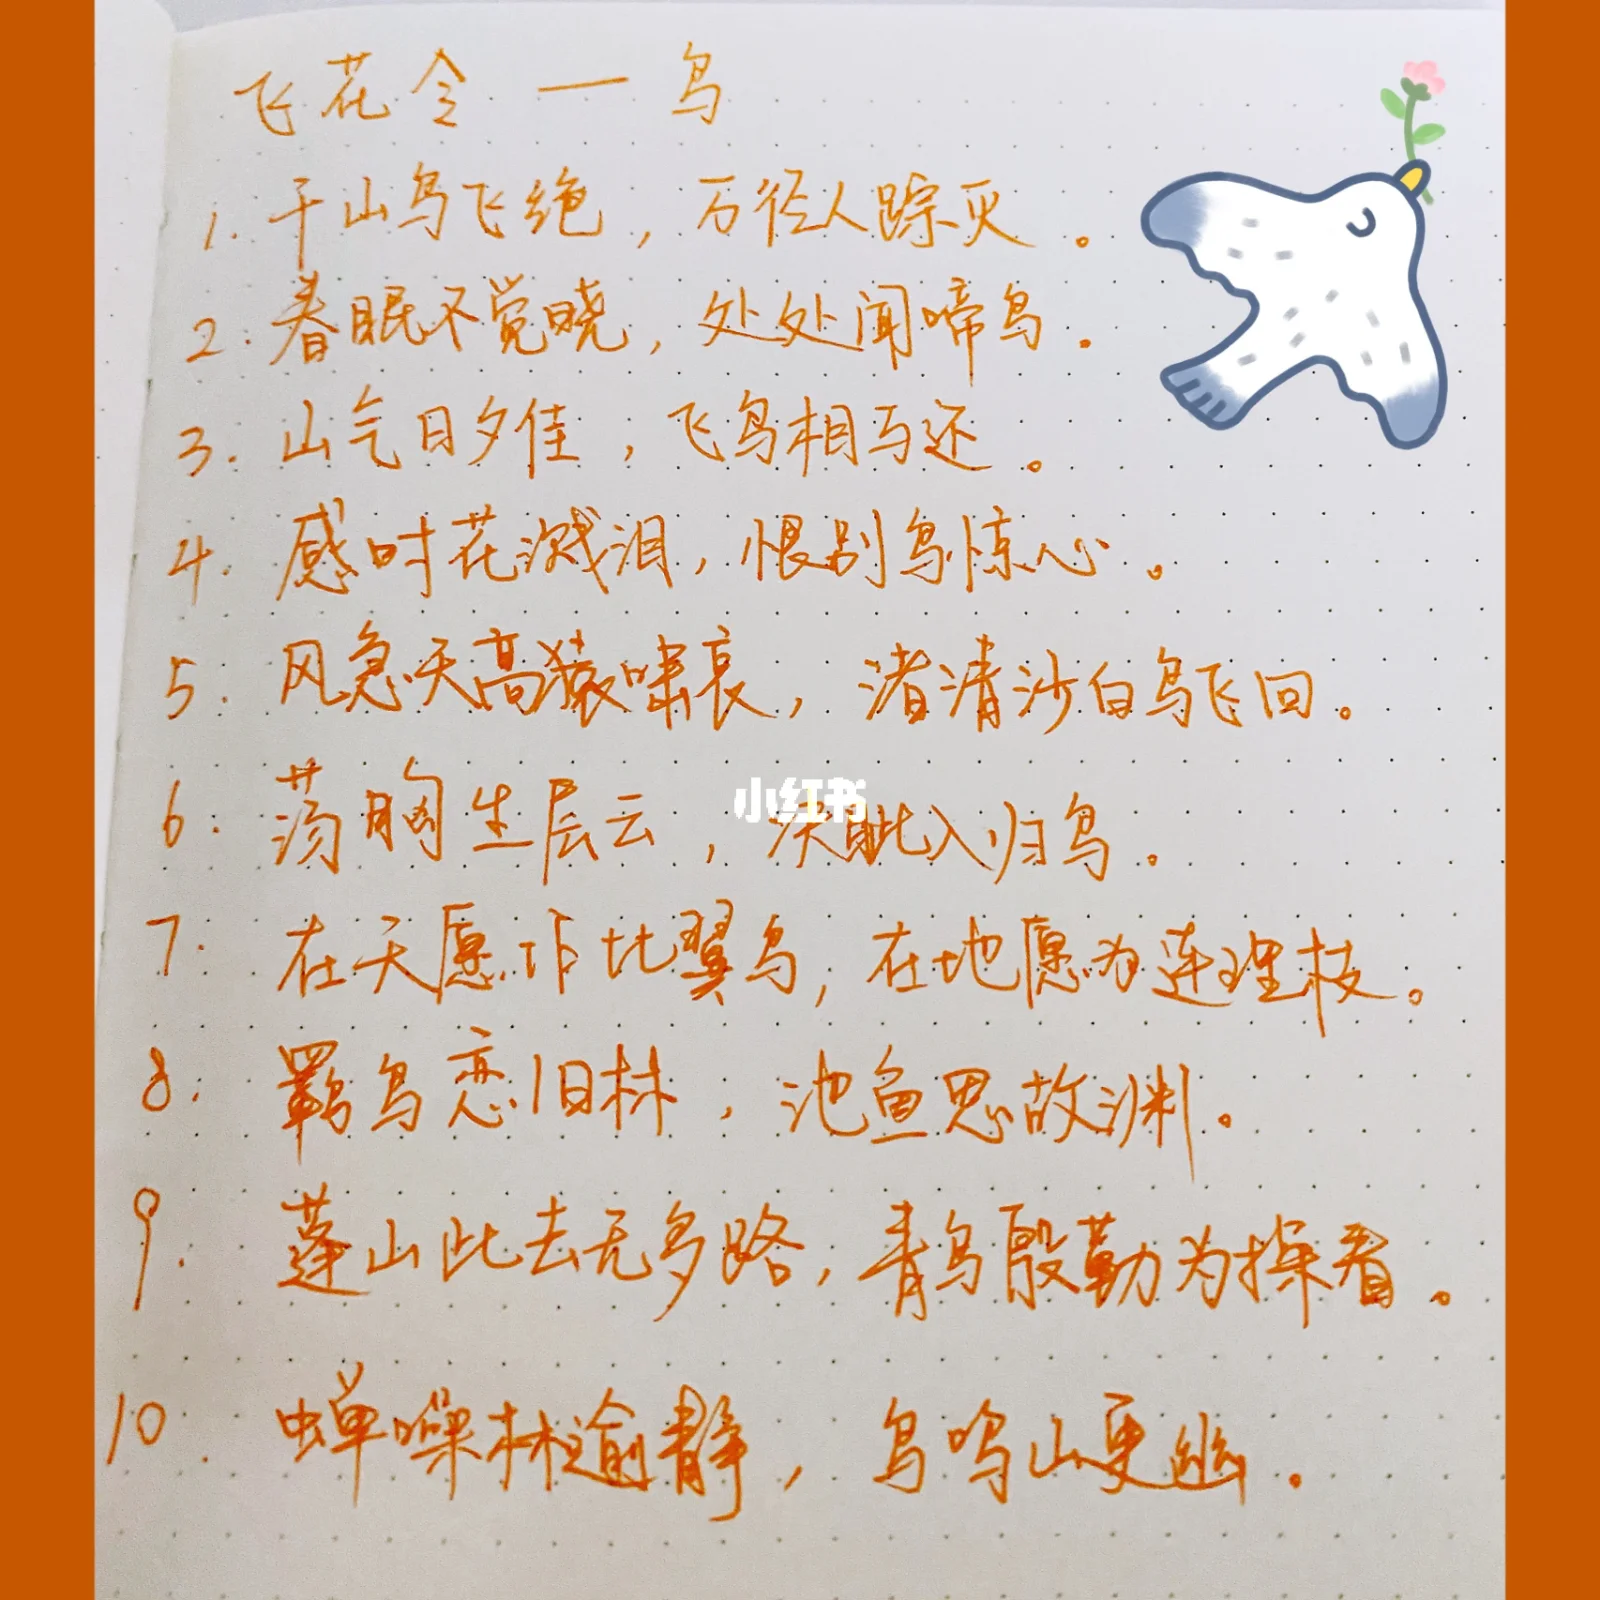 飞花令 — 鸟
1. 千山鸟飞绝，万径人踪灭。
2. 春眠不觉晓，处处闻啼鸟.
3. 山气日夕佳，飞鸟相与还。
4. 感时花溅泪，恨别鸟惊心。
5. 风急天高猿啸哀，渚清沙白鸟飞回。
小红书
6. 荡胸生层云，决眦入归鸟。
7. 在天愿作比翼鸟，在地愿为连理枝。
8. 羁鸟恋旧林，池鱼思故渊。
9. 蓬山此去无多路，青鸟殷勤为探看。
10. 蝉噪林逾静，鸟鸣山更幽。